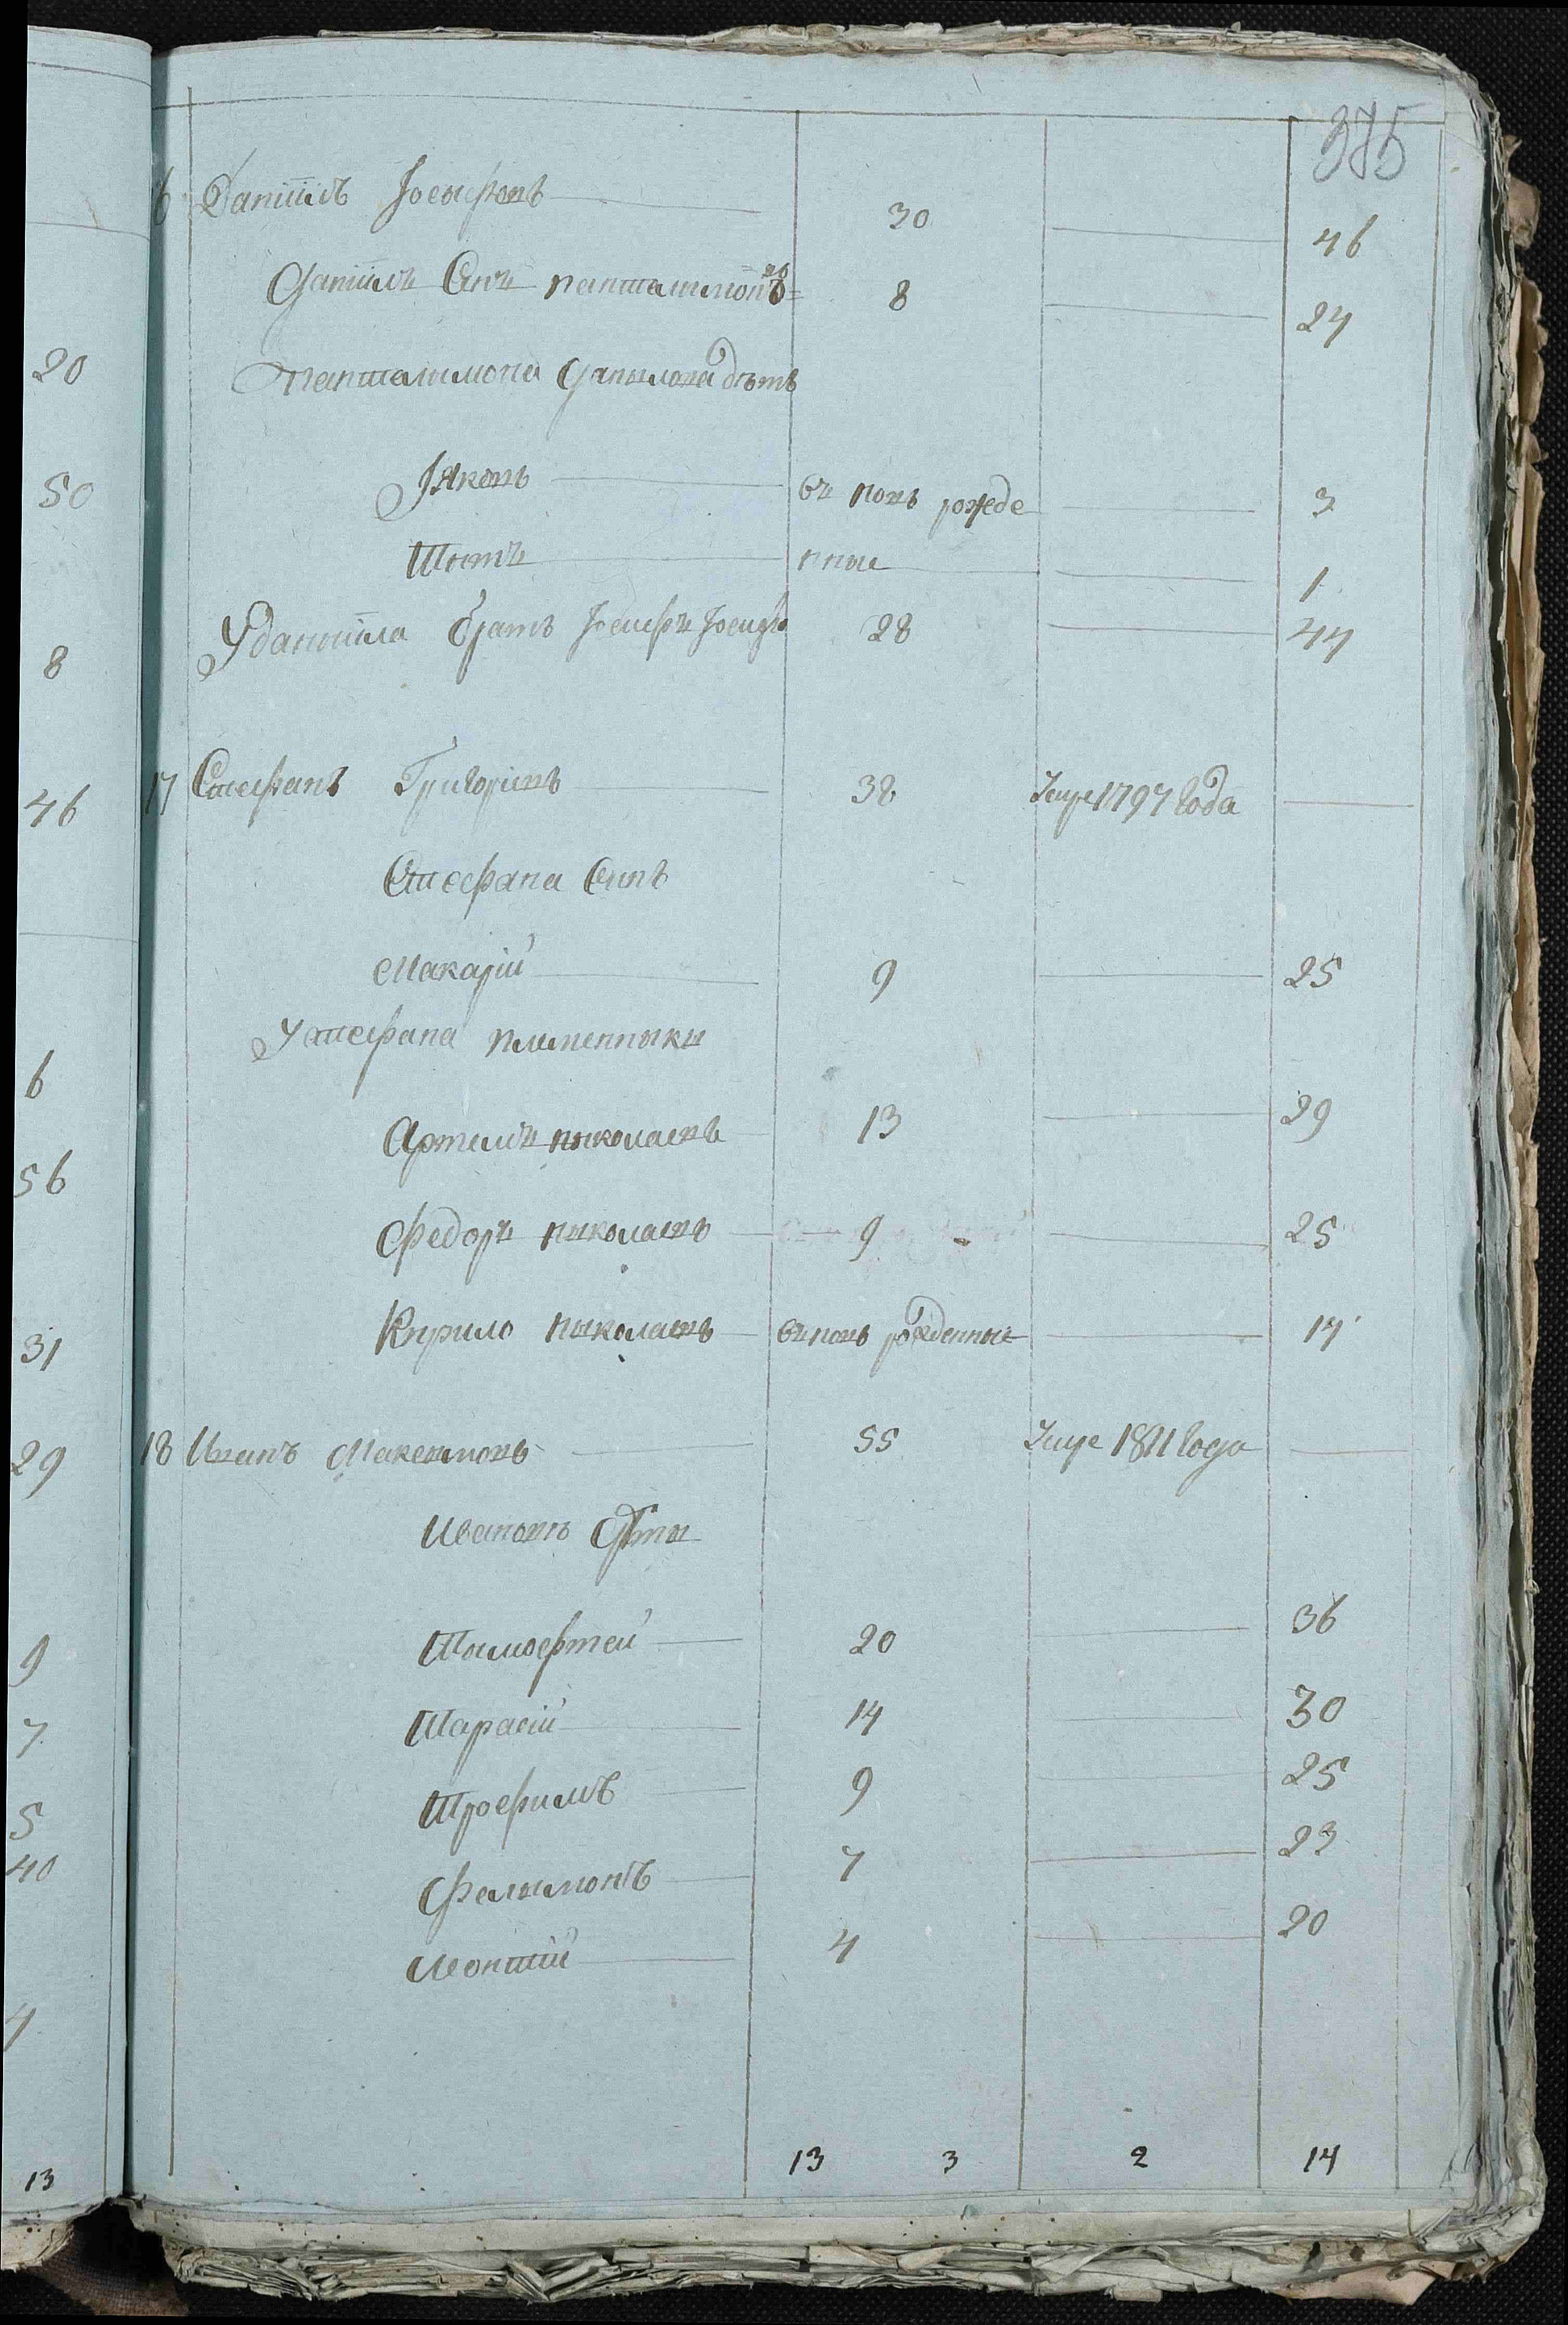 375
6 Даниилъ Іосифовъ 30 46
Даниилъ Синъ пантелимонъ 8 24
Пантелимона Данилова дѣтѣ
Іяковъ въ новъ рожде 3
Титъ нные 1
У даниила братъ Іосифъ Іосиф 28 44
17 Стефанъ Григоріевъ 38 Умре 1797 Года
Стефана Синъ
Макарій 9 25
У стефана племенныки
Артемъ николаевъ 13 29
Федоръ николаевъ 9 25
Кирило ныколаевъ въ новъ рожденные 14
18 Иванъ Максимовъ 55 Умре 1811 Года
Ивановы Дѣти
Тымофтей 20 36
Тарасій 14 30
Трофимъ 9 25
Филымонъ 7 23
Леонтий 4 20
13 3 2 14
20
50
8
46
6
56
31
29
9
7
5
40
4
13